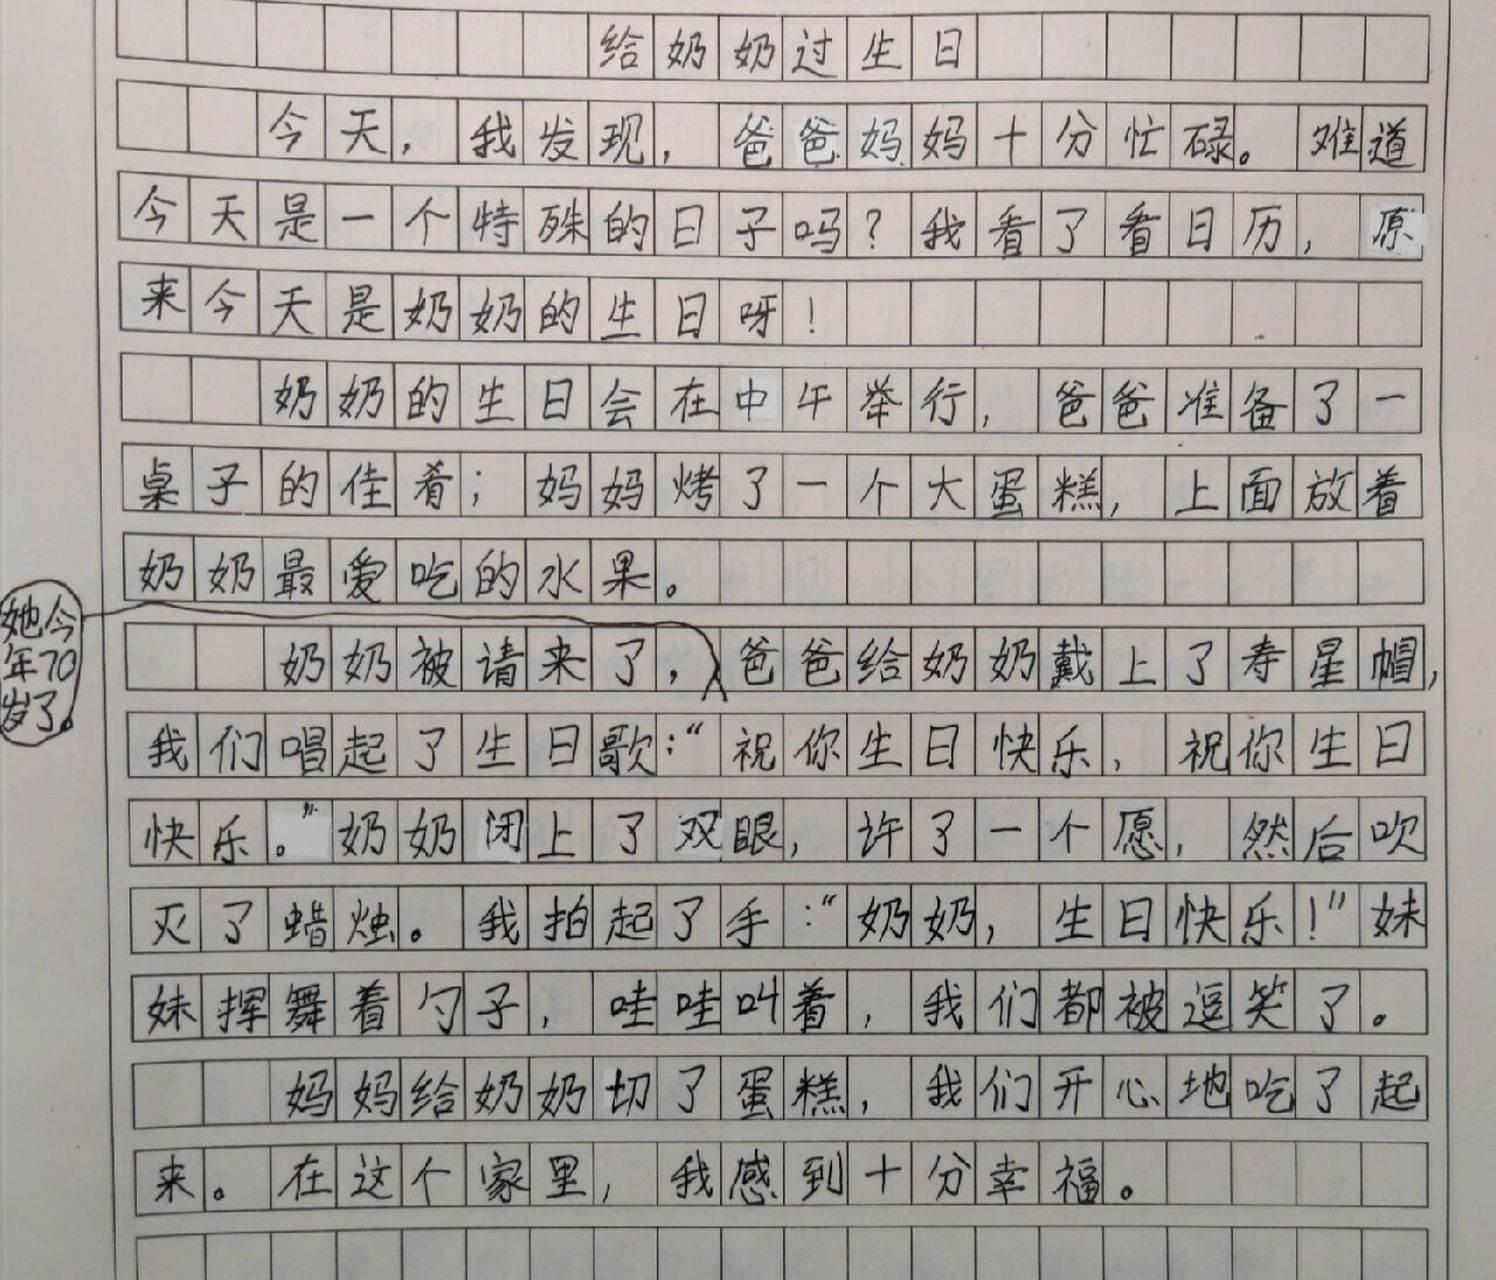 给奶奶过生日
今天，我发现，爸爸妈妈十分忙碌。难道
今天是一个特殊的日子吗？我看了看日历，原
来今天是奶奶的生日呀！
奶奶的生日会在中午举行，爸爸准备了一
桌子的佳肴；妈妈烤了一个大蛋糕，上面放着
奶奶最爱吃的水果。
她今
年70
岁了。
奶奶被请来了，爸爸给奶奶戴上了寿星帽，
我们唱起了生日歌：“祝你生日快乐，祝你生日
快乐。”奶奶闭上了双眼，许了一个愿，然后吹
灭了蜡烛。我拍起了手：“奶奶，生日快乐！”妹
妹挥舞着勺子，哇哇叫着，我们都被逗笑了。
妈妈给奶奶切了蛋糕，我们开心地吃了起
来。在这个家里，我感到十分幸福。